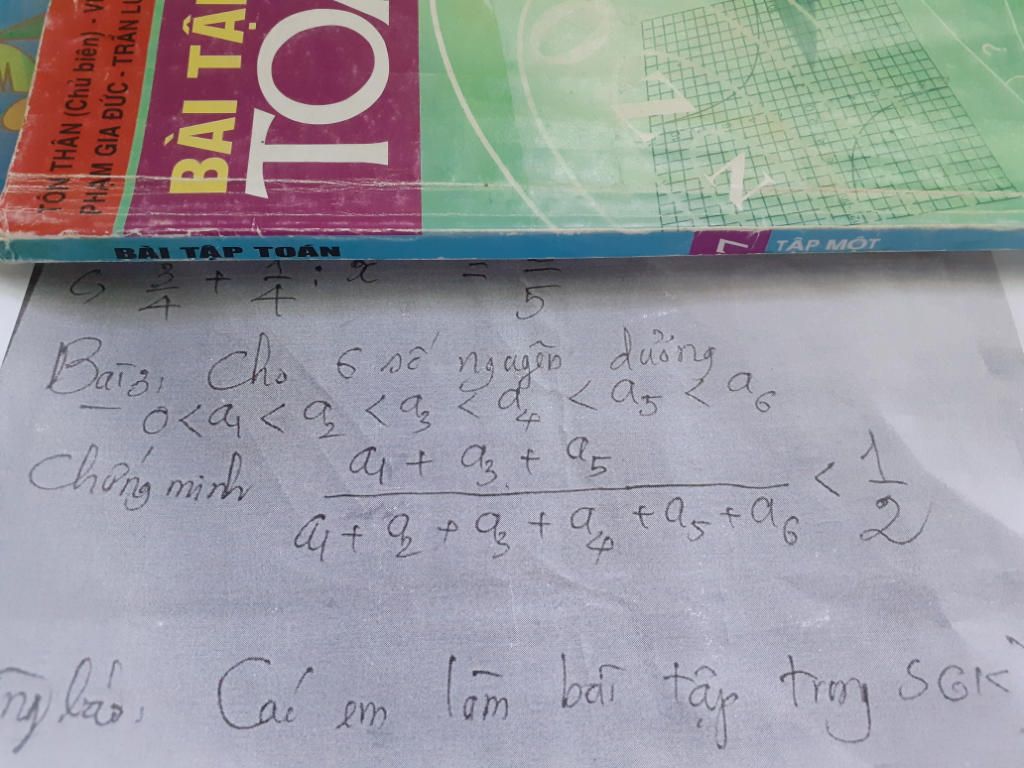 TÔN THÂN (Chủ biên) -
PHẠM GIA ĐỨC - TRẦN
BÀI TẬP
TOÁ
BÀI TẬP TOÁN 7 TẬP MỘT
c, 3/4 + 1/4 : x = /5
Bài 3, Cho 6 số nguyên dương
0 < a1 < a2 < a3 < a4 < a5 < a6
Chứng minh (a1 + a3 + a5) / (a1 + a2 + a3 + a4 + a5 + a6) < 1/2
Các em làm bài tập trong SGK